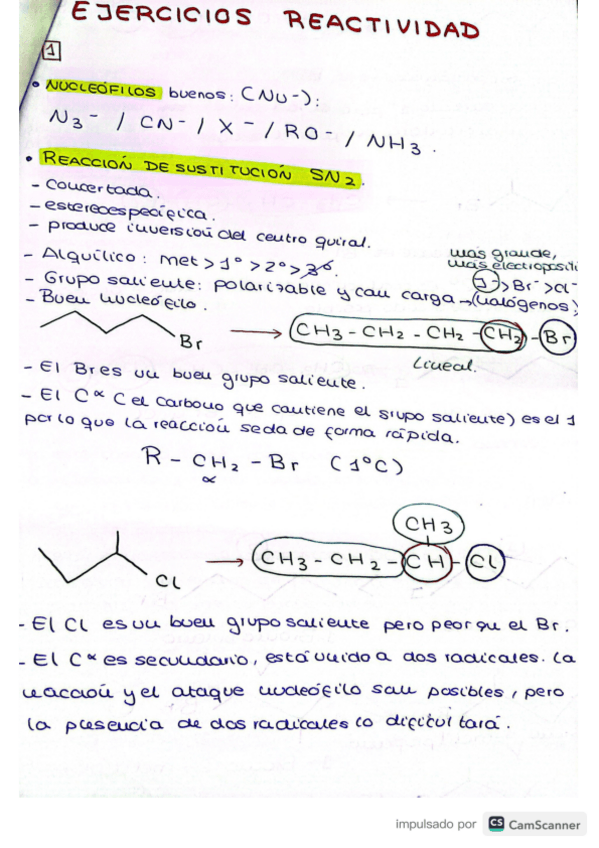 EJERCICIOS REACTIVIDAD
1
• NUCLEÓFILOS buenos: (Nu-):
N3- / CN- / X- / RO- / NH3.
• REACCIÓN DE SUSTITUCIÓN SN2.
- Concertada.
- estereoespecífica.
- produce inversión del centro quiral.
- Alquílico: met > 1º > 2º > 3º.
más grande,
más electropositi
I- > Br- > Cl-
- Grupo saliente: polarizable y con carga → (halógenos)
- Buen nucleófilo.
Br
→ CH3 - CH2 - CH2 - CH2 - Br
Lineal.
- El Br es un buen grupo saliente.
- El Cα (el carbono que contiene el grupo saliente) es el 1
por lo que la reacción se da de forma rápida.
R - CH2 - Br (1ºC)
α
CH3
Cl
→ CH3 - CH2 - CH - Cl
- El Cl es un buen grupo saliente pero peor que el Br.
- El Cα es secundario, está unido a dos radicales. La
reacción y el ataque nucleófilo son posibles, pero
la presencia de dos radicales lo dificultará.
impulsado por CS CamScanner